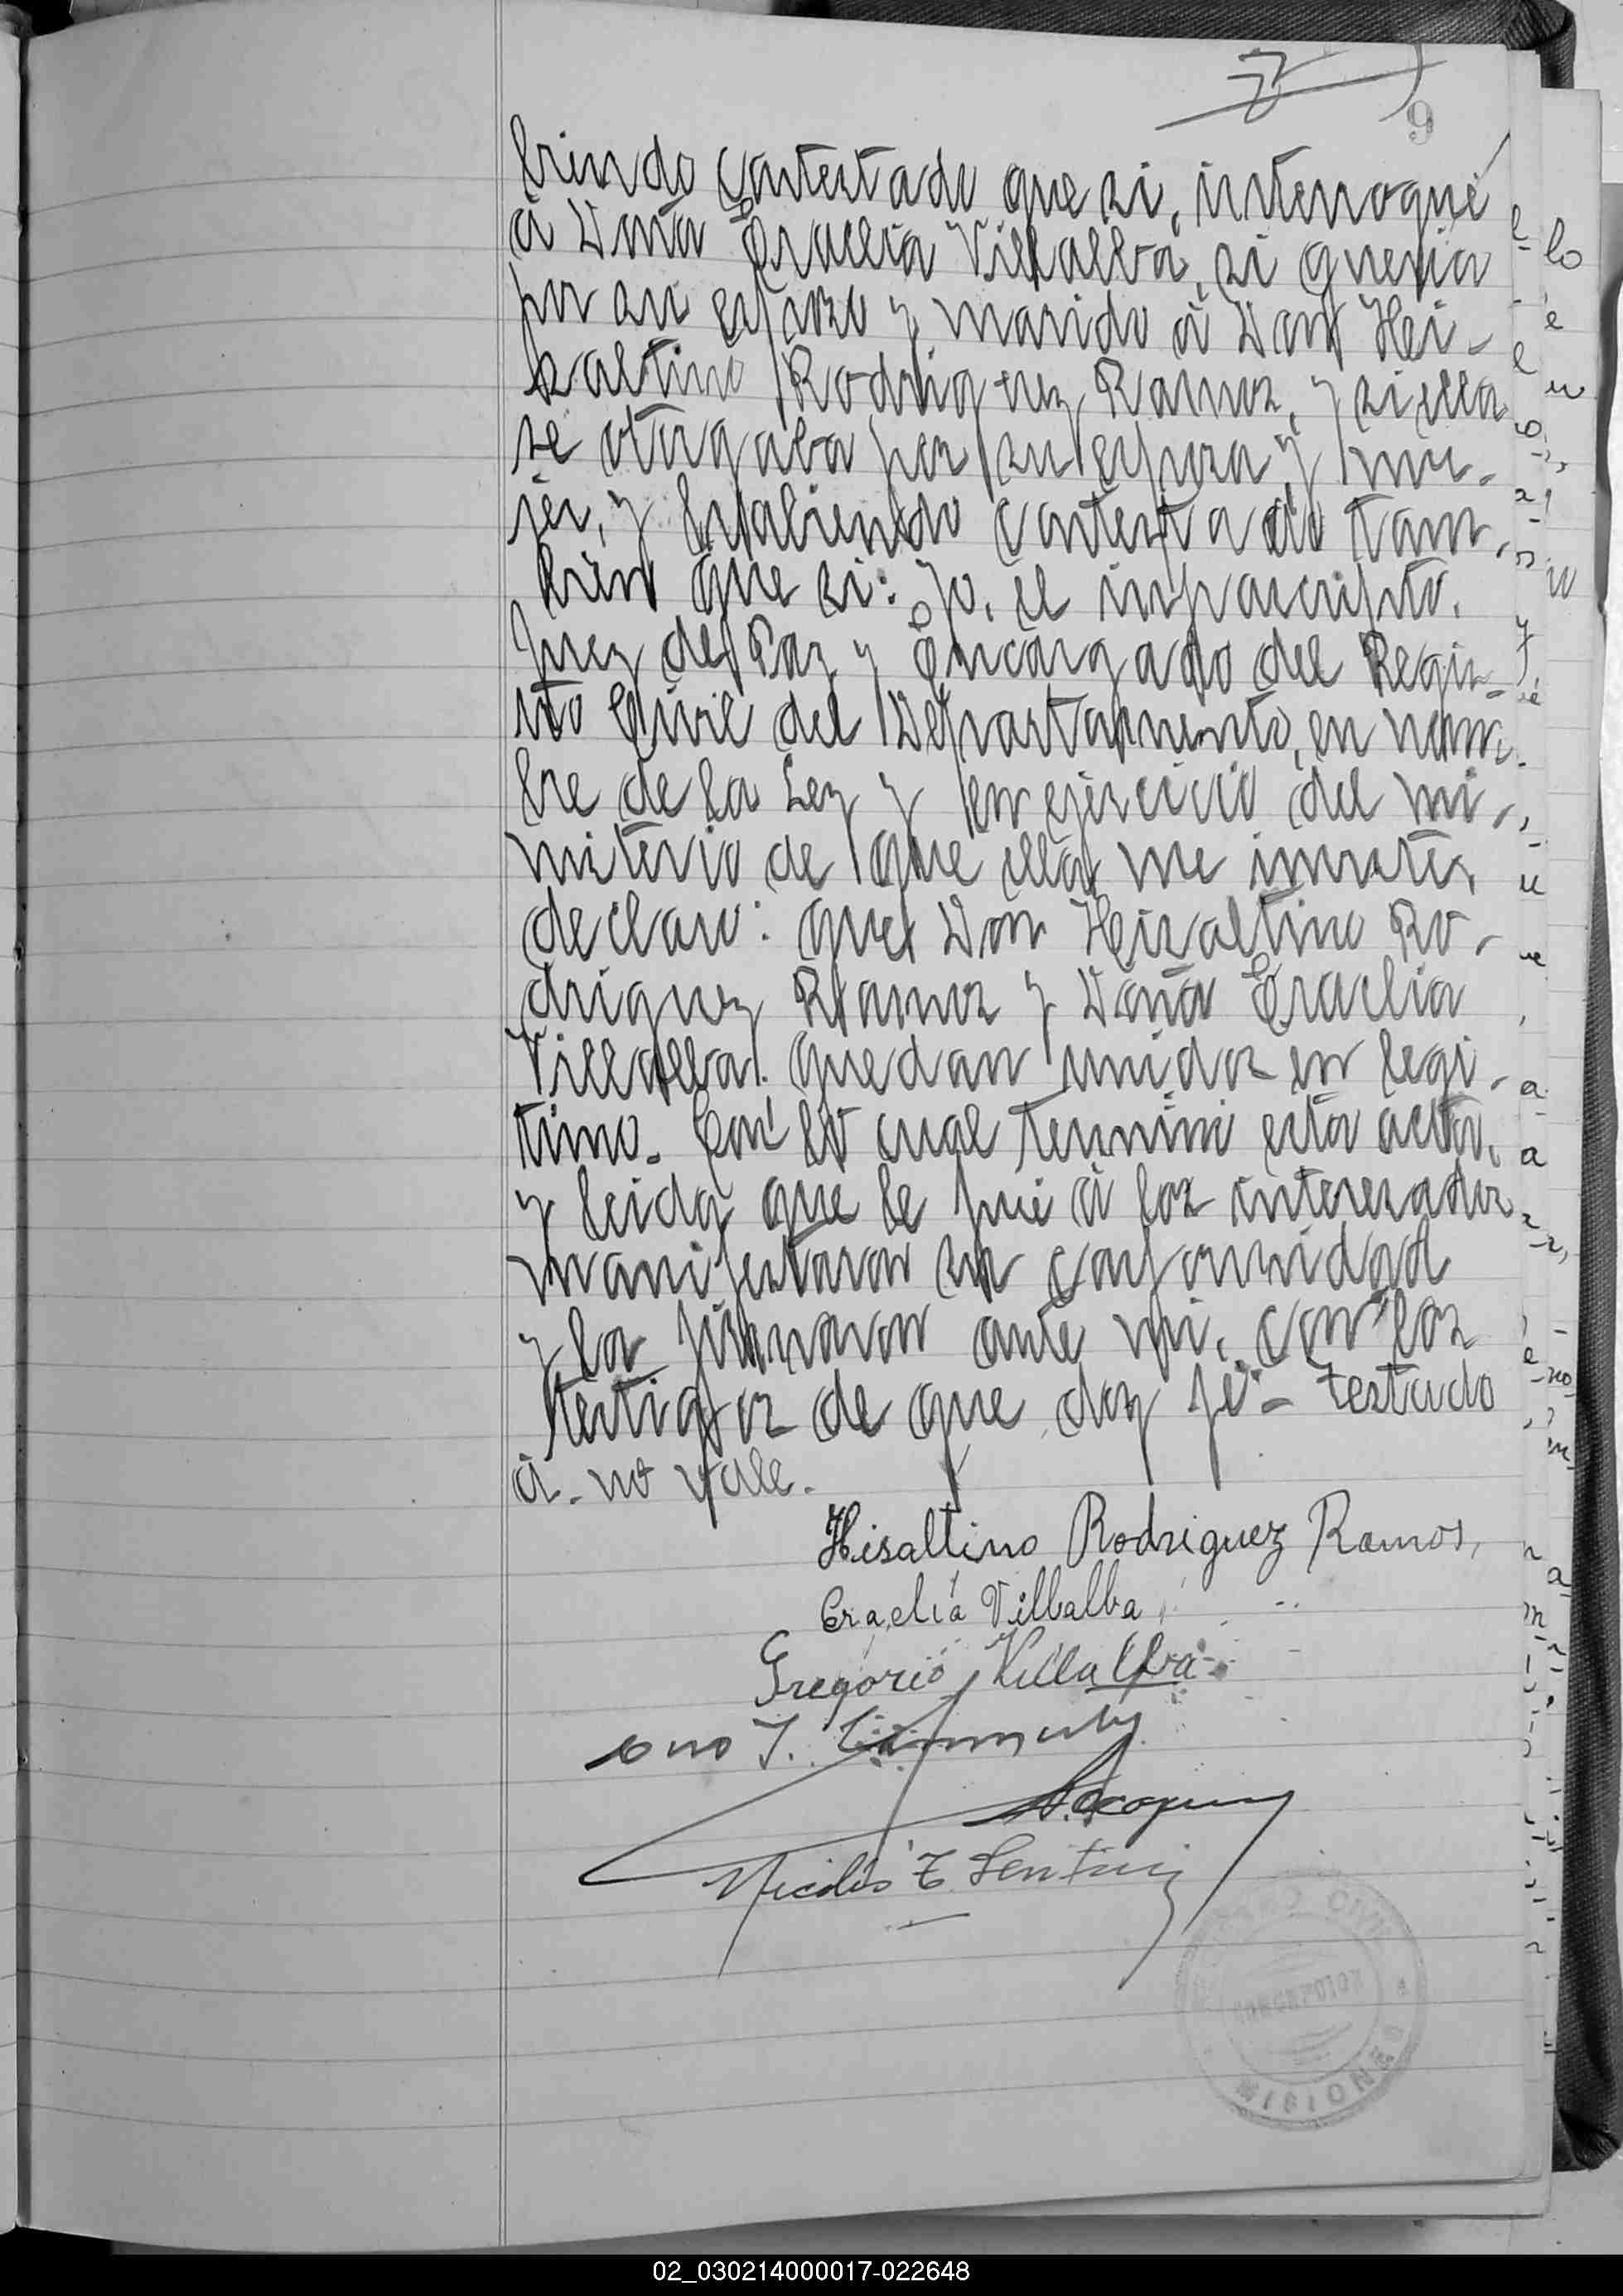 9
biendo contestado que si, interrogué
á Doña Eraclia Villalba, si queria
por su esposo y marido á Don Hei-
saltino Rodriguez Ramos, y si ella
se otorgaba por su esposa y mu-
jer, y habiendo contestado tam-
bien que si: yo, el infrascripto,
Juez de Paz y Encargado del Regis-
tro Civil del Departamento, en nom-
bre de la Ley y en ejercicio del mi-
nisterio de que ella me inviste,
declaro: que Don Heisaltino Ro-
driguez Ramos y Doña Eraclia
Villalba quedan unidos en legi-
timo. Con lo cual terminó esta acta,
y leida que le fué á los interesados
manifestaron su conformidad
y la firmaron ante mi, con los
testigos de que doy fé - testado
á - no vale.
Hisaltino Rodriguez Ramos,
Eraclia Villalba
Gregorio Villalba
Nicolás
CIVIL
MISIONES
02_030214000017-022648